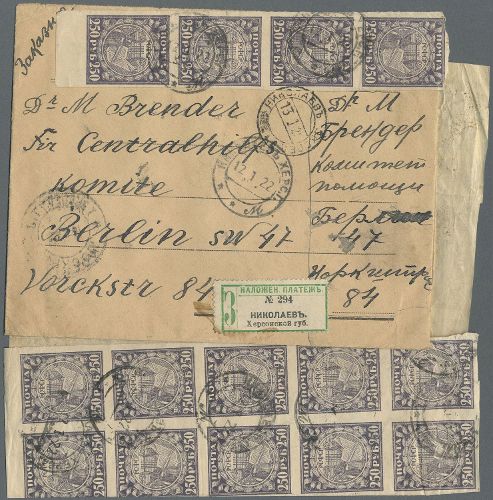 Заказное
250 РУБ. 250
ПОЧТА
РСФСР
250 РУБ. 250
ПОЧТА
РСФСР
250 РУБ. 250
ПОЧТА
РСФСР
250 РУБ. 250
ПОЧТА
РСФСР
Dr M Brender
Für Centralhilfs
komite
Berlin SW 47
Yorckstr 84
Dr M
Брендер
комитет
помощи
Берлин
47
Иоркштр
84
НИКОЛАЕВЪ
13.1.22
НИКОЛАЕВЪ ХЕРС.
12.1.22
НАЛОЖЕН. ПЛАТЕЖЪ
З
№ 294
НИКОЛАЕВЪ.
Херсонской губ.
ПОЧТА
РСФСР
250 РУБ. 250
ПОЧТА
РСФСР
250 РУБ. 250
ПОЧТА
РСФСР
250 РУБ. 250
ПОЧТА
РСФСР
250 РУБ. 250
ПОЧТА
РСФСР
250 РУБ. 250
ПОЧТА
РСФСР
250 РУБ. 250
ПОЧТА
РСФСР
250 РУБ. 250
ПОЧТА
РСФСР
250 РУБ. 250
ПОЧТА
РСФСР
250 РУБ. 250
ПОЧТА
РСФСР
250 РУБ. 250